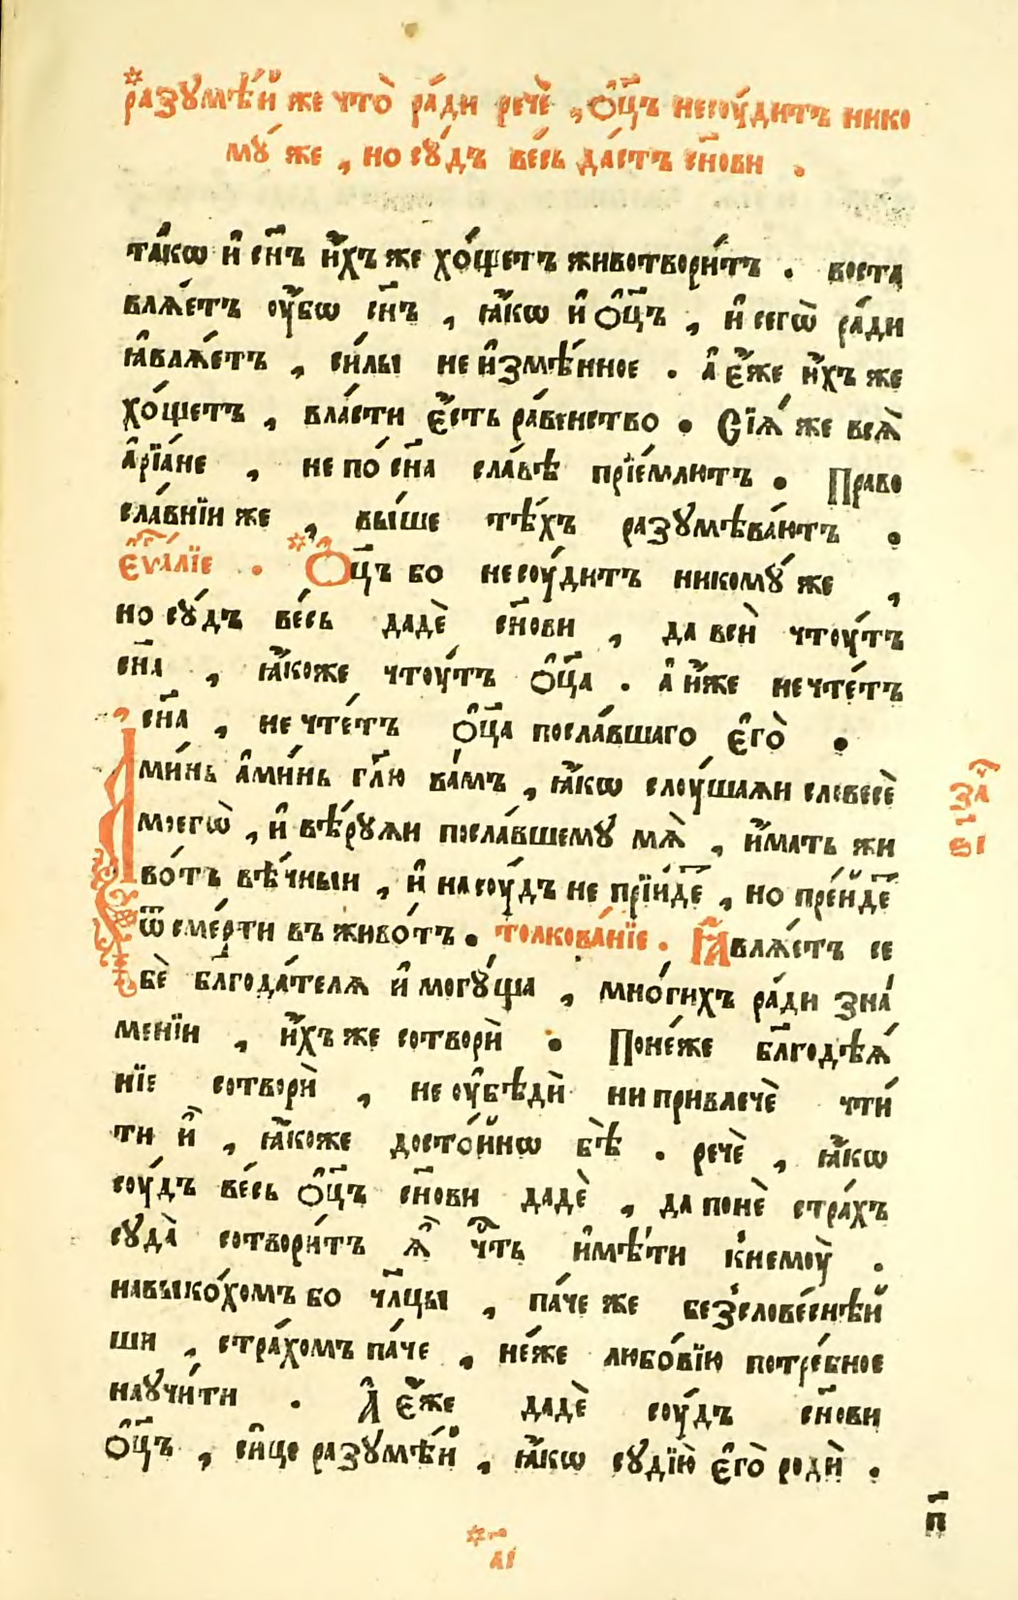 разꙋмѣ́й же что̀ ра́ди речѐ , ѻ҆ц҃ъ несоу́дитъ нико
мꙋ́ же , но сꙋ́дъ ве́сь да́стъ сн҃ови .
та́кѡ и҆ сн҃ъ и҆́хъ же хо́щетъ животвори́тъ . воста
влѧ́етъ оу҆́бѡ сн҃ъ , ꙗ҆́кѡ и҆ ѻ҆ц҃ъ , и҆ сегѡ̀ ра́ди
ꙗ҆влѧ́етъ , си́лы не и҆змѣ́нное . а҆ є҆́же и҆́хъ же
хо́щетъ , вла́сти є҆́сть ра́венство . Сїѧ́ же всѧ̀
а҆рїа́не , не по сн҃а сла́вѣ прїе́млютъ . Право
сла́внїи же , вы́ше тѣ́хъ разꙋмѣва́ютъ .
є҆ѵⷢ҇лїе . Ѻ҆ц҃ъ бо несоу́дитъ никомꙋ́ же ,
но сꙋ́дъ ве́сь дадѐ сн҃ови , да всѝ чтоу́тъ
сн҃а , ꙗ҆́коже чтоу́тъ ѻ҆ц҃а . а҆ и҆́же не чте́тъ
сн҃а , не чте́тъ ѻ҆ц҃а посла́вшаго є҆го̀ .
А҆ми́нь а҆ми́нь гл҃ю ва́мъ , ꙗ҆́кѡ слоу́шаѧи словесѐ
моегѡ̀ , и҆ вѣ́рꙋѧи посла́вшемꙋ мѧ̀ , и҆́мать жи
во́тъ вѣ́чныи , и҆ на соу́дъ не прїи́деⷮ , но пре́йдеⷮ
ѿ сме́рти въ живо́тъ . толкова́нїе . Ꙗ҆влѧ́етъ се
бѐ бл҃года́телѧ и҆ могꙋ́ща , мно́гихъ ра́ди зна́
менїи , и҆́хъ же сотворѝ . Поне́же бл҃годѣѧ́
нїе сотворѝ , не оу҆бѣдѝ ни привлечѐ чти́
ти и҆̀ , ꙗ҆́коже досто́йнѡ бѣ̀ . речѐ , ꙗ҆́кѡ
соу́дъ ве́сь ѻ҆ц҃ъ сн҃ови дадѐ , да понѐ стра́хъ
сꙋда̀ сотвори́тъ ѧ҆̀ чⷭ҇ть и҆мѣ́ти к̾немоу̀ .
навыко́хомъ бо чл҃цы , па́че же без̾слове́снѣй
ши , стра́хомъ па́че , не́же любо́вїю потре́бное
наꙋчи́ти . А҆ є҆́же дадѐ соу́дъ сн҃ови
ѻ҆ц҃ъ , си́це разꙋмѣ́й , ꙗ҆́кѡ сꙋдїю̀ є҆го̀ родѝ .
заⷱ҇
в҃і
п҃
а҃і